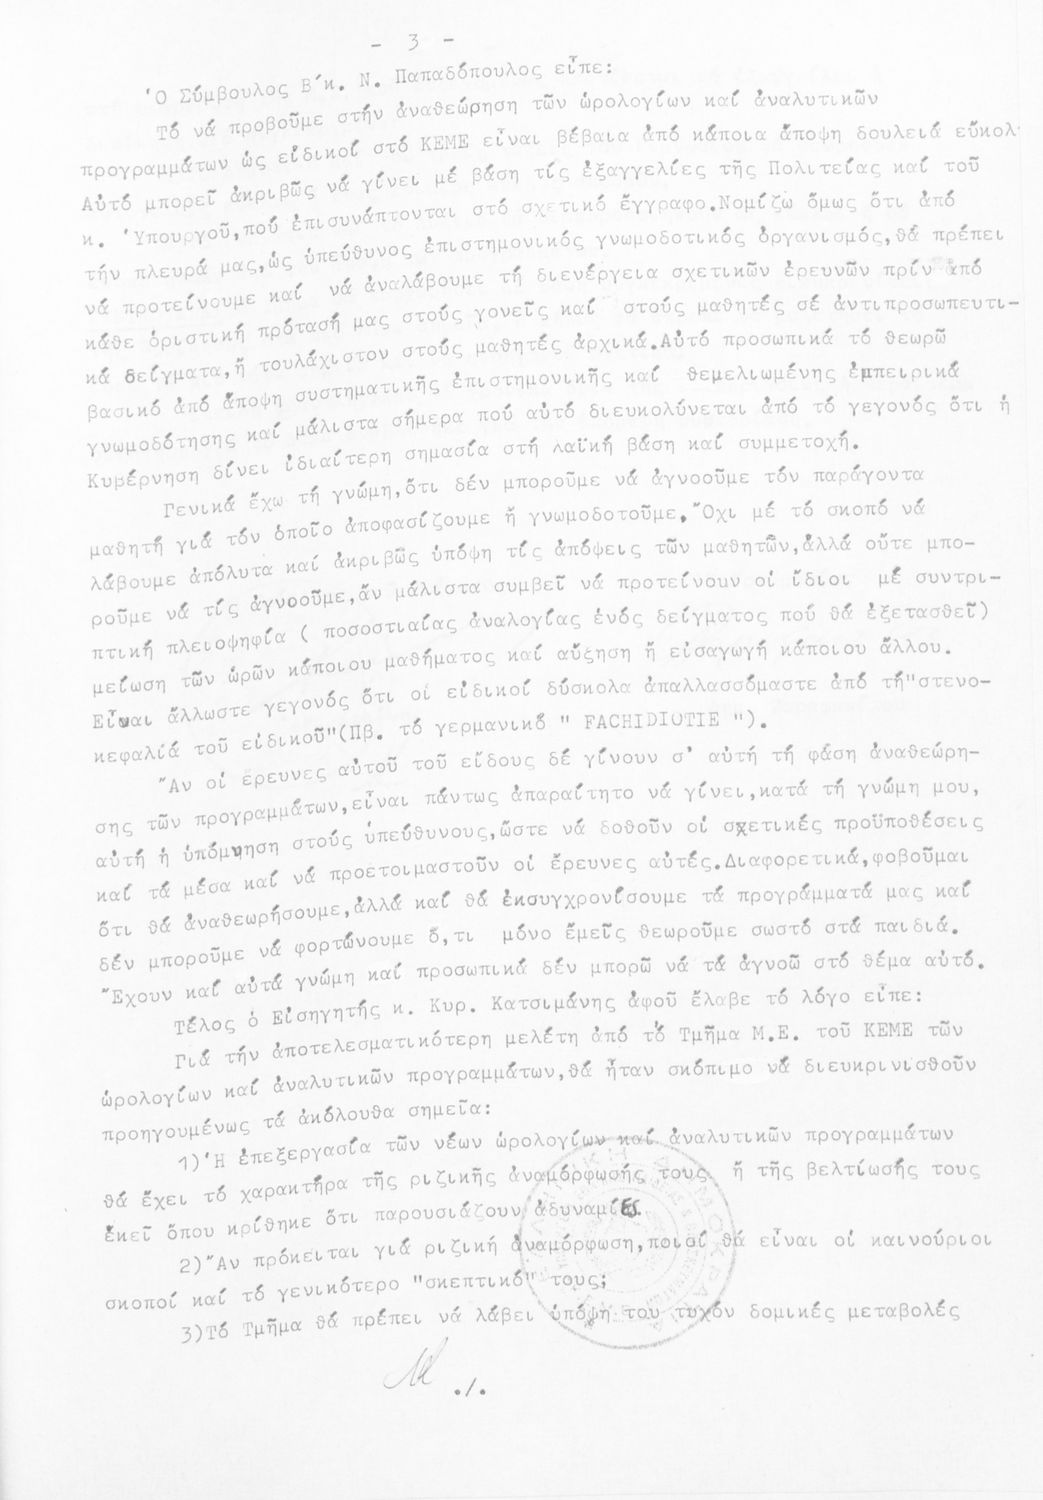 - 3 -
Ὁ Σύμβουλος Β΄κ. Ν. Παπαδόπουλος εἶπε:
Τό νά προβοῦμε στήν ἀναθεώρηση τῶν ὡρολογίων καί ἀναλυτικῶν
προγραμμάτων ὡς εἰδικοί στό ΚΕΜΕ εἶναι βέβαια ἀπό κάποια ἄποψη δουλειά εὔκολ
Αὐτό μπορεῖ ἀκριβῶς νά γίνει μέ βάση τίς ἐξαγγελίες τῆς Πολιτείας καί τοῦ
κ. Ὑπουργοῦ,πού ἐπισυνάπτονται στό σχετικό ἔγγραφο.Νομίζω ὅμως ὅτι ἀπό
τήν πλευρά μας,ὡς ὑπεύθυνος ἐπιστημονικός γνωμοδοτικός ὀργανισμός,θά πρέπει
νά προτείνουμε καί νά ἀναλάβουμε τή διενέργεια σχετικῶν ἐρευνῶν πρίν ἀπό
κάθε ὁριστική πρότασή μας στούς γονεῖς καί στούς μαθητές σέ ἀντιπροσωπευτι-
κά δείγματα,ἤ τουλάχιστον στούς μαθητές ἀρχικά.Αὐτό προσωπικά τό θεωρῶ
βασικό ἀπό ἄποψη συστηματικῆς ἐπιστημονικῆς καί θεμελιωμένης ἐμπειρικά
γνωμοδότησης καί μάλιστα σήμερα πού αὐτό διευκολύνεται ἀπό τό γεγονός ὅτι ἡ
Κυβέρνηση δίνει ἰδιαίτερη σημασία στή λαϊκή βάση καί συμμετοχή.
Γενικά ἔχω τή γνώμη,ὅτι δέν μποροῦμε νά ἀγνοοῦμε τόν παράγοντα
μαθητή γιά τόν ὁποῖο ἀποφασίζουμε ἤ γνωμοδοτοῦμε. Ὄχι μέ τό σκοπό νά
λάβουμε ἀπόλυτα καί ἀκριβῶς ὑπόψη τίς ἀπόψεις τῶν μαθητῶν,ἀλλά οὔτε μπο-
ροῦμε νά τίς ἀγνοοῦμε,ἄν μάλιστα συμβεῖ νά προτείνουν οἱ ἴδιοι μέ συντρι-
πτική πλειοψηφία ( ποσοστιαίας ἀναλογίας ἑνός δείγματος πού θά ἐξετασθεῖ)
μείωση τῶν ὡρῶν κάποιου μαθήματος καί αὔξηση ἤ εἰσαγωγή κάποιου ἄλλου.
Εἶναι ἄλλωστε γεγονός ὅτι οἱ εἰδικοί δύσκολα ἀπαλλασσόμαστε ἀπό τή"στενο-
κεφαλιά τοῦ εἰδικοῦ"(Πβ. τό γερμανικό " FACHIDIOTIE ").
Ἄν οἱ ἔρευνες αὐτοῦ τοῦ εἴδους δέ γίνουν σ' αὐτή τή φάση ἀναθεώρη-
σης τῶν προγραμμάτων,εἶναι πάντως ἀπαραίτητο νά γίνει,κατά τή γνώμη μου,
αὐτή ἡ ὑπόμνηση στούς ὑπεύθυνους,ὥστε νά δοθοῦν οἱ σχετικές προϋποθέσεις
καί τά μέσα καί νά προετοιμαστοῦν οἱ ἔρευνες αὐτές.Διαφορετικά,φοβοῦμαι
ὅτι θά ἀναθεωρήσουμε,ἀλλά καί θά ἐκσυγχρονίσουμε τά προγράμματά μας καί
δέν μποροῦμε νά φορτώνουμε ὅ,τι μόνο ἐμεῖς θεωροῦμε σωστό στά παιδιά.
Ἔχουν καί αὐτά γνώμη καί προσωπικά δέν μπορῶ νά τά ἀγνοῶ στό θέμα αὐτό.
Τέλος ὁ Εἰσηγητής κ. Κυρ. Κατσιμάνης ἀφοῦ ἔλαβε τό λόγο εἶπε:
Γιά τήν ἀποτελεσματικότερη μελέτη ἀπό τό Τμῆμα Μ.Ε. τοῦ ΚΕΜΕ τῶν
ὡρολογίων καί ἀναλυτικῶν προγραμμάτων,θά ἦταν σκόπιμο νά διευκρινισθοῦν
προηγουμένως τά ἀκόλουθα σημεῖα:
1)Ἡ ἐπεξεργασία τῶν νέων ὡρολογίων καί ἀναλυτικῶν προγραμμάτων
θά ἔχει τό χαρακτήρα τῆς ριζικῆς ἀναμόρφωσής τους ἤ τῆς βελτίωσής τους
ἐκεῖ ὅπου κρίθηκε ὅτι παρουσιάζουν ἀδυναμίες
2)Ἄν πρόκειται γιά ριζική ἀναμόρφωση,ποιοί θά εἶναι οἱ καινούριοι
σκοποί καί τό γενικότερο "σκεπτικό" τους;
3)Τό Τμῆμα θά πρέπει νά λάβει ὑπόψη του τυχόν δομικές μεταβολές
./.